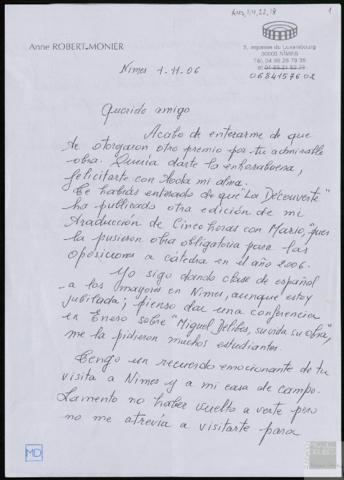 AMD, 114, 22, 18
1
Anne ROBERT-MONIER
5, impasse du Luxembourg
30000 NÎMES
Tél. 04 66 26 79 35
0684157602
Nimes 1-11-06
Querido amigo
Acabo de enterarme de que
te otorgaron otro premio por tu admirable
obra. Quería darte la enhorabuena,
felicitarte con toda mi alma.
Te habías enterado de que "La Découverte"
ha publicado otra edición de mi
traducción de Cinco horas con Mario, pues
la pusieron obra obligatoria para las
oposiciones a cátedra en el año 2006.
Yo sigo dando clase de español
a los mayores en Nimes, aunque estoy
jubilada; pienso dar una conferencia
en Enero sobre "Miguel Delibes, su vida su obra",
me la pidieron muchos estudiantes.
Tengo un recuerdo emocionante de tu
visita a Nimes y a mi casa de campo.
Lamento no haber vuelto a verte pero
no me atrevía a visitarte para
MD